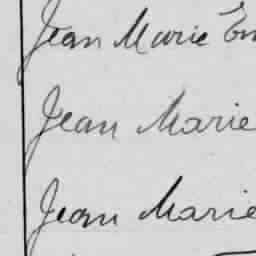 Jean Marie Em
Jean Marie
Jean Marie